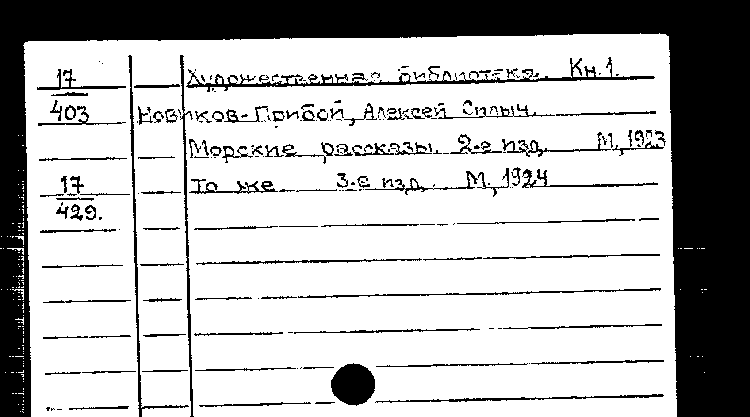 17 Художественная библиотека. Кн. 1.
403 Новиков-Прибой, Алексей Силыч.
Морские рассказы. 2-е изд. М., 1923
17 То же. 3-е изд. М., 1924
429.